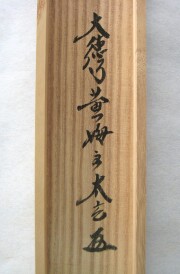 大徳寺黄梅主太玄